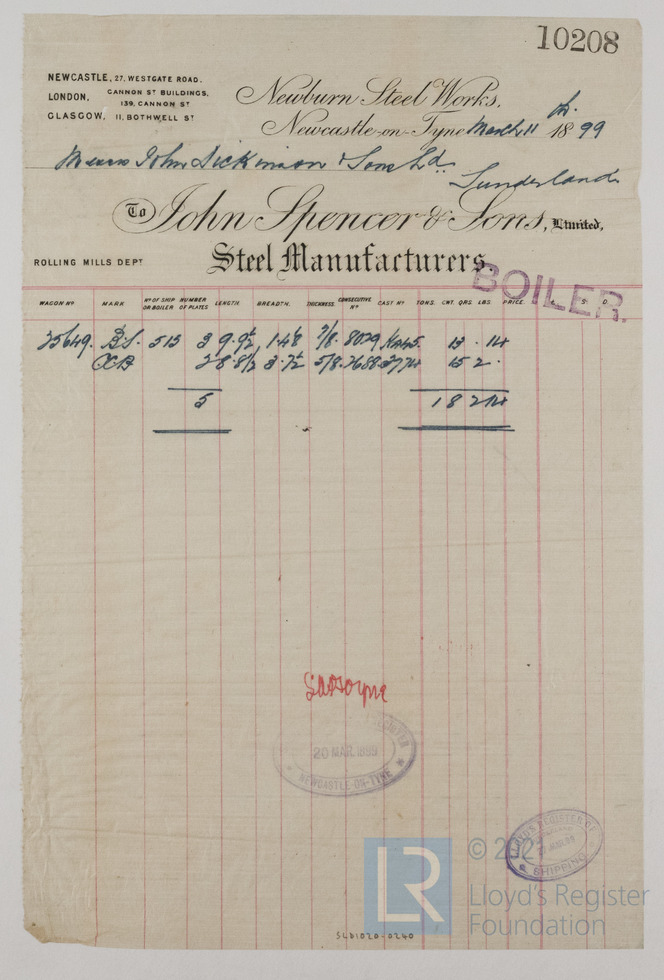 10208
NEWCASTLE, 27, WESTGATE ROAD.
LONDON, CANNON ST BUILDINGS,
139, CANNON ST
GLASGOW, 11, BOTHWELL ST
Newburn Steel Works,
Newcastle-on-Tyne March 11 th. 1899
Messrs John Dickinson & Sons Ld.
Sunderland
To John Spencer & Sons, Limited,
ROLLING MILLS DEPT
Steel Manufacturers.
BOILER.
WAGON Nº MARK Nº OF SHIP OR BOILER NUMBER OF PLATES LENGTH BREADTH. THICKNESS CONSECUTIVE Nº CAST Nº TONS. CWT. QRS. LBS PRICE. £ S. D.
35649. BS. 515 3 9.9½ 1.4⅛ 7/8. 8029 13 . 14
2 8.8½ 3.7½ 5/8. 7688. 3774 15 2 .
5 1 8 2 14
20 MAR. 1899
NEWCASTLE-ON-TYNE
LLOYD'S REGISTER OF
MAR.99
SHIPPING
LR
© 2021
Lloyd's Register
Foundation
SLD1020-0240